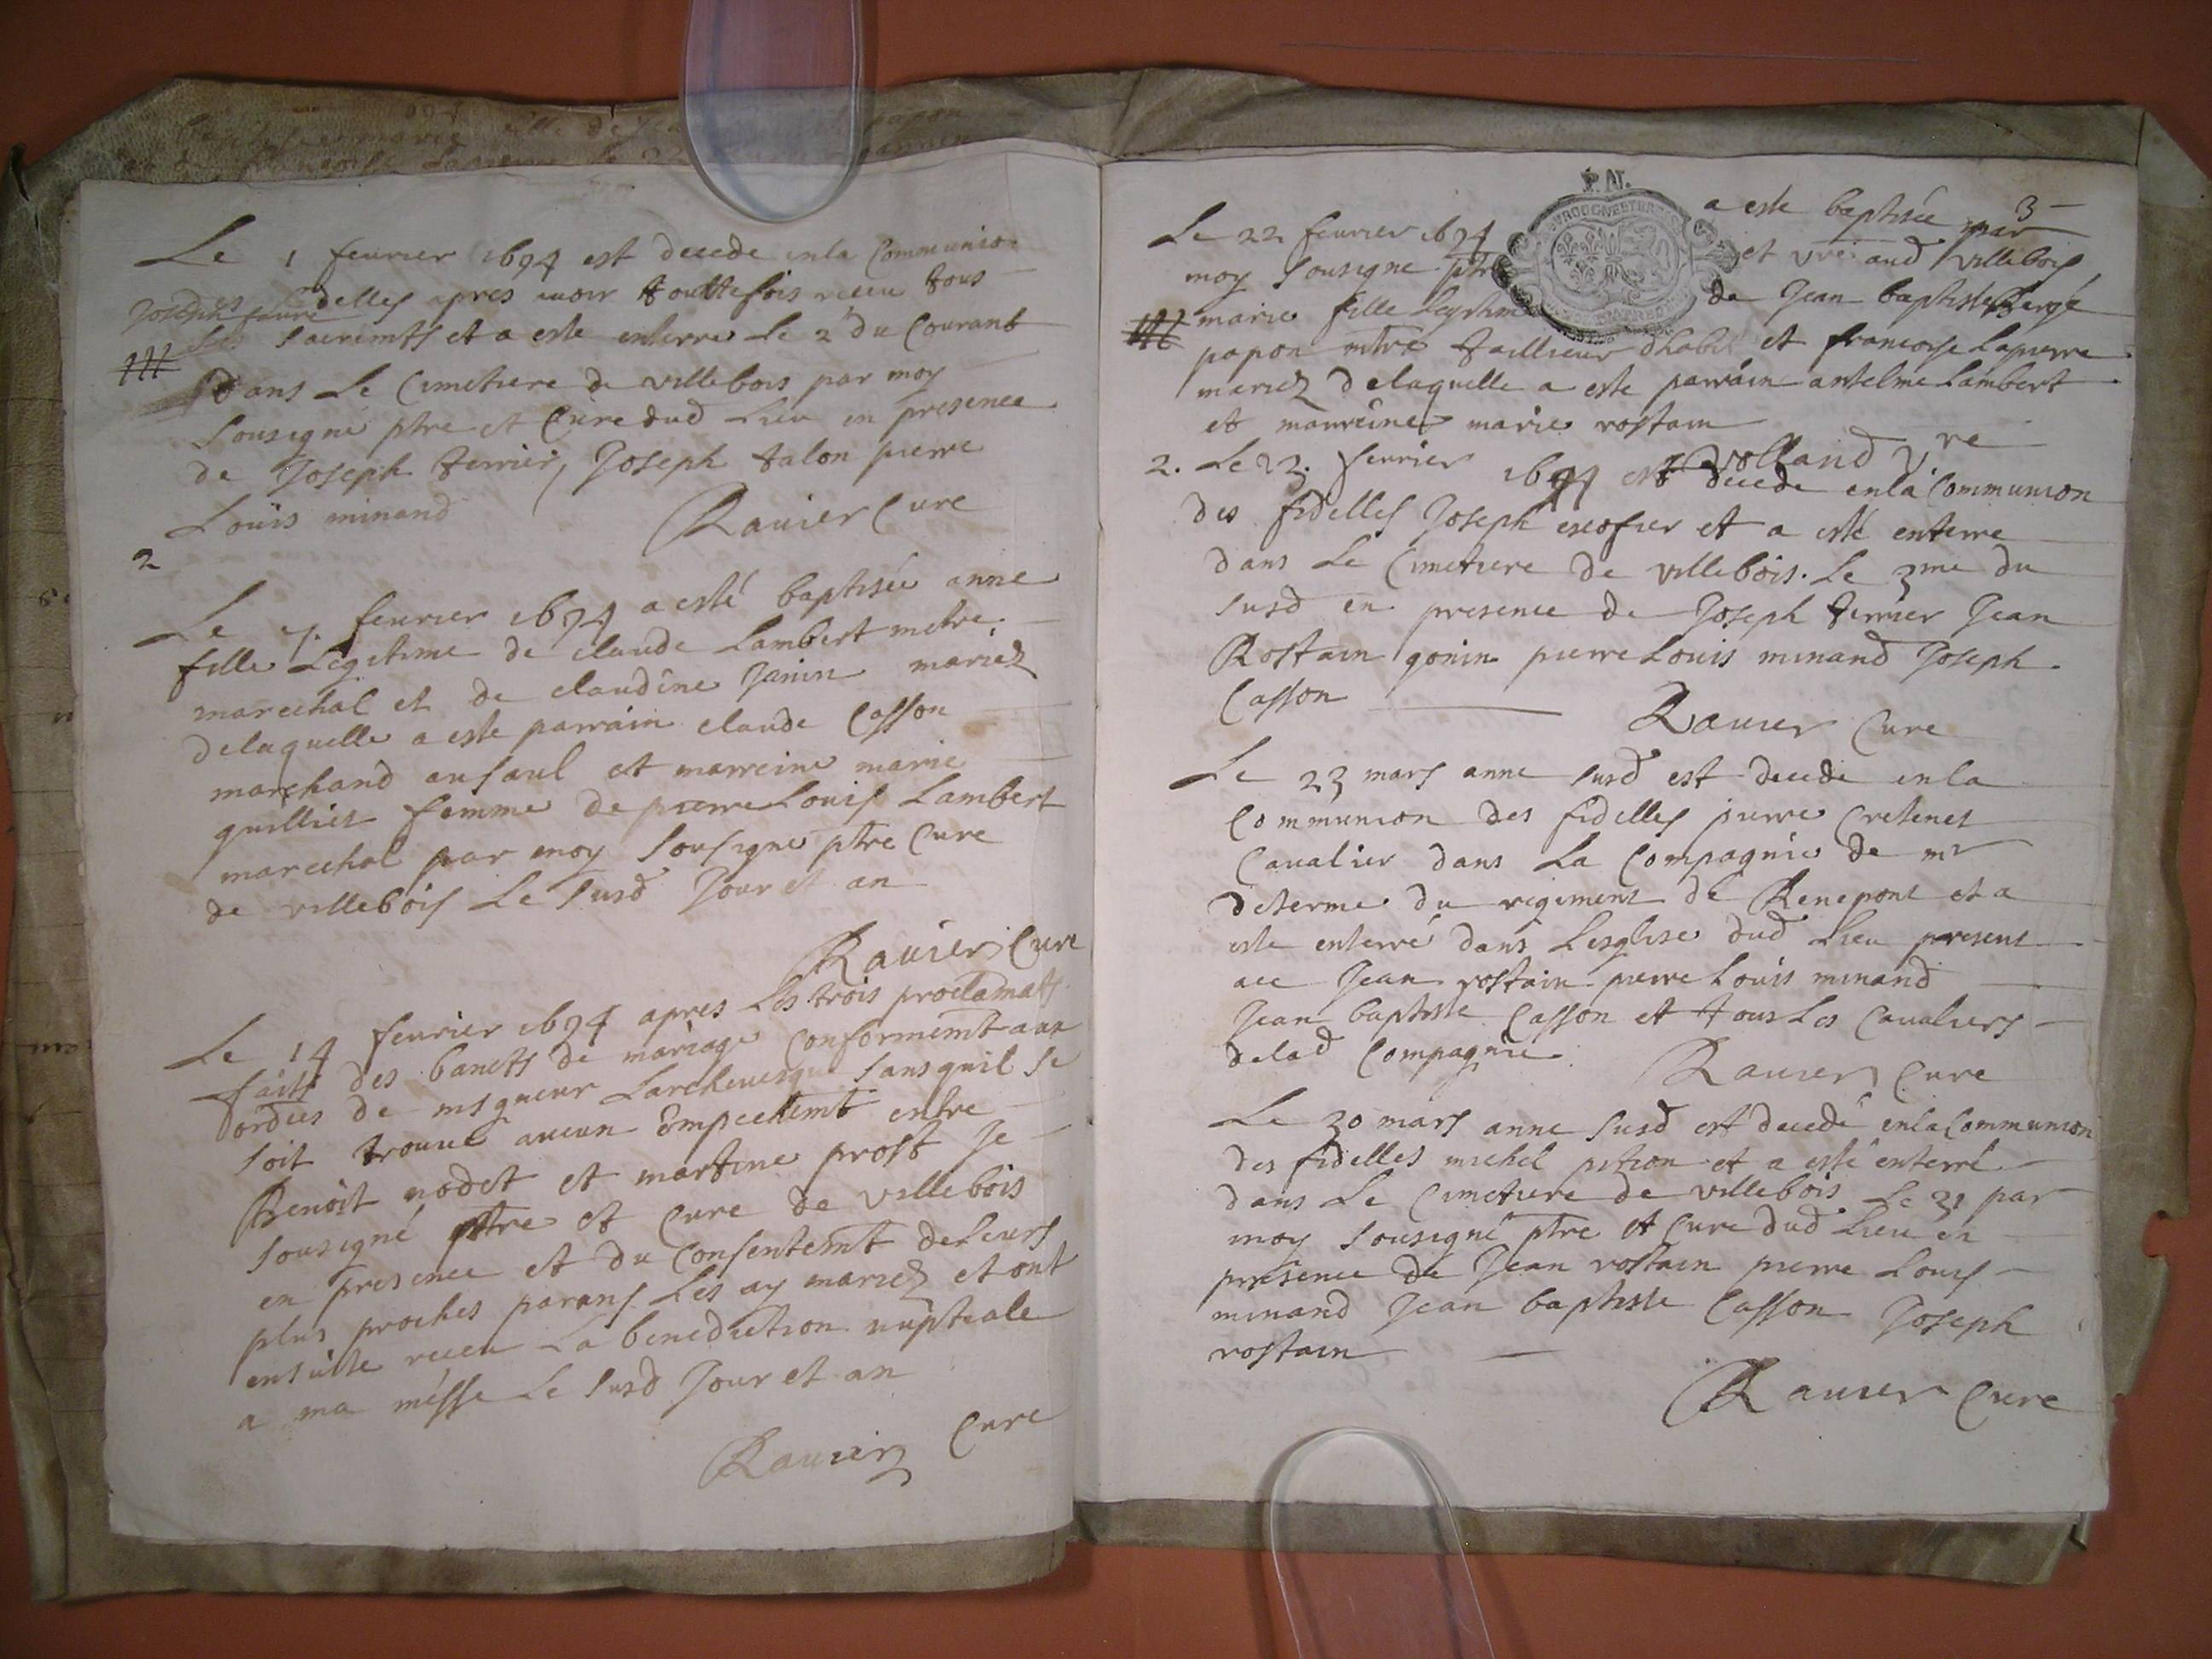 Le 1 feurier 1694 est decede enla Communion
Joseph faure
des fidelles apres auoir touttefois receu tous
les sacremts et a este enterre Le 2 du Courant
dans Le Cimetiere de villebois par moy
sousigné ptre et Cure dud Lieu en presence
de Joseph terrier, Joseph talon pierre
Louis minand
Rauier Cure
2
Le 7. feurier 1694 a esté baptisée anne
fille Legitime de claude Lambert metre
marechal et de claudine Janin mariez
delaquelle a este parrain claude Casson
marchand ausaul et marreine marie
quillier femme de pierre Louis Lambert
marechal par moy sousigne ptre Cure
de villebois Le susd Jour et an
Rauier Cure
Le 14 feurier 1694 apres Les trois proclamats
faitts des bancts de mariage Conformemt aux
ordres de msgneur Larcheuesque sans quil se
soit trouué aucun Empechemt entre
Benoist nodet et martine prost Je
sousigné ptre et Cure de villebois
en presence et du Consentemt de Leurs
plus proches parans Les ay mariez et ont
ensuitte receu La benediction nuptiale
a ma messe Le susd Jour et an
Rauier Cure
P. N.
3
Le 22 feurier 1694 a este baptisée par
moy sousigne ptre et vre aud villebois
marie fille Legitim de Jean baptiste Berge
papon mtre taillieur dhabit et francoise Lapierre
mariez delaquelle a este parrain antelme Lambert
et marreine marie rostain
Volland vre
2. Le 23. feurier 1694 est decede enla Communion
des fidelles Joseph excofier et a esté enterre
dans Le Cimetiere de villebois. Le 3me du
susd en presence de Joseph terrier Jean
Rostain gonin pierre Louis minand Joseph
Casson
Rauier Cure
Le 23 mars anne susd est decede enla
Communion des fidelles pierre Cretenet
Caualier dans La Compagnie de mr
determe du regiment de Renepont et a
este enterré dans Lesglise dud Lieu present
aec Jean rostain pierre Louis minand
Jean baptiste Casson et tous Les Caualiers
delad Compagnie
Rauier Cure
Le 30 mars anne susd est decedé enla Communion
des fidelles michel pition et a esté enterré
dans Le Cimetiere de villebois Le 31 par
moy sousigné ptre et Cure dud Lieu en
presence de Jean rostain pierre Louis
minand Jean baptiste Casson Joseph
rostain
Rauier Cure